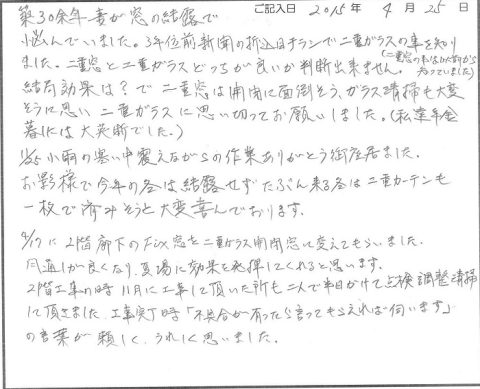 ご記入日 2015年 4月 25日
築30余年 妻が窓の結露で
悩んでいました。3年位前新聞の折込チラシで二重ガラスの事を知り
ました。二重窓と二重ガラスどっちが良いか判断出来ません。(二重窓の方は以前から知っていました)
結局効果は?で二重窓は開閉に面倒そう、ガラス清掃も大変
そうに思い二重ガラスに思い切ってお願いしました。(私達年金
暮しには大英断でした。)
11/25 小雨の寒い中震えながらの作業ありがとう御座居ました。
お影様で今年の冬は結露せず たぶん来る冬は二重カーテンも
一枚で済みそうと大変喜んでおります。
4/17に2階廊下のFix窓を二重ガラス開閉窓に変えてもらいました。
風通しが良くなり、夏場に効果を発揮してくれると思います。
2階工事の時 11月に工事して頂いた所も二人で半日かけて点検調整清掃
して頂きました。工事完了時「不具合が有ったら言ってもらえれば伺います」
の言葉が頼しく、うれしく思いました。